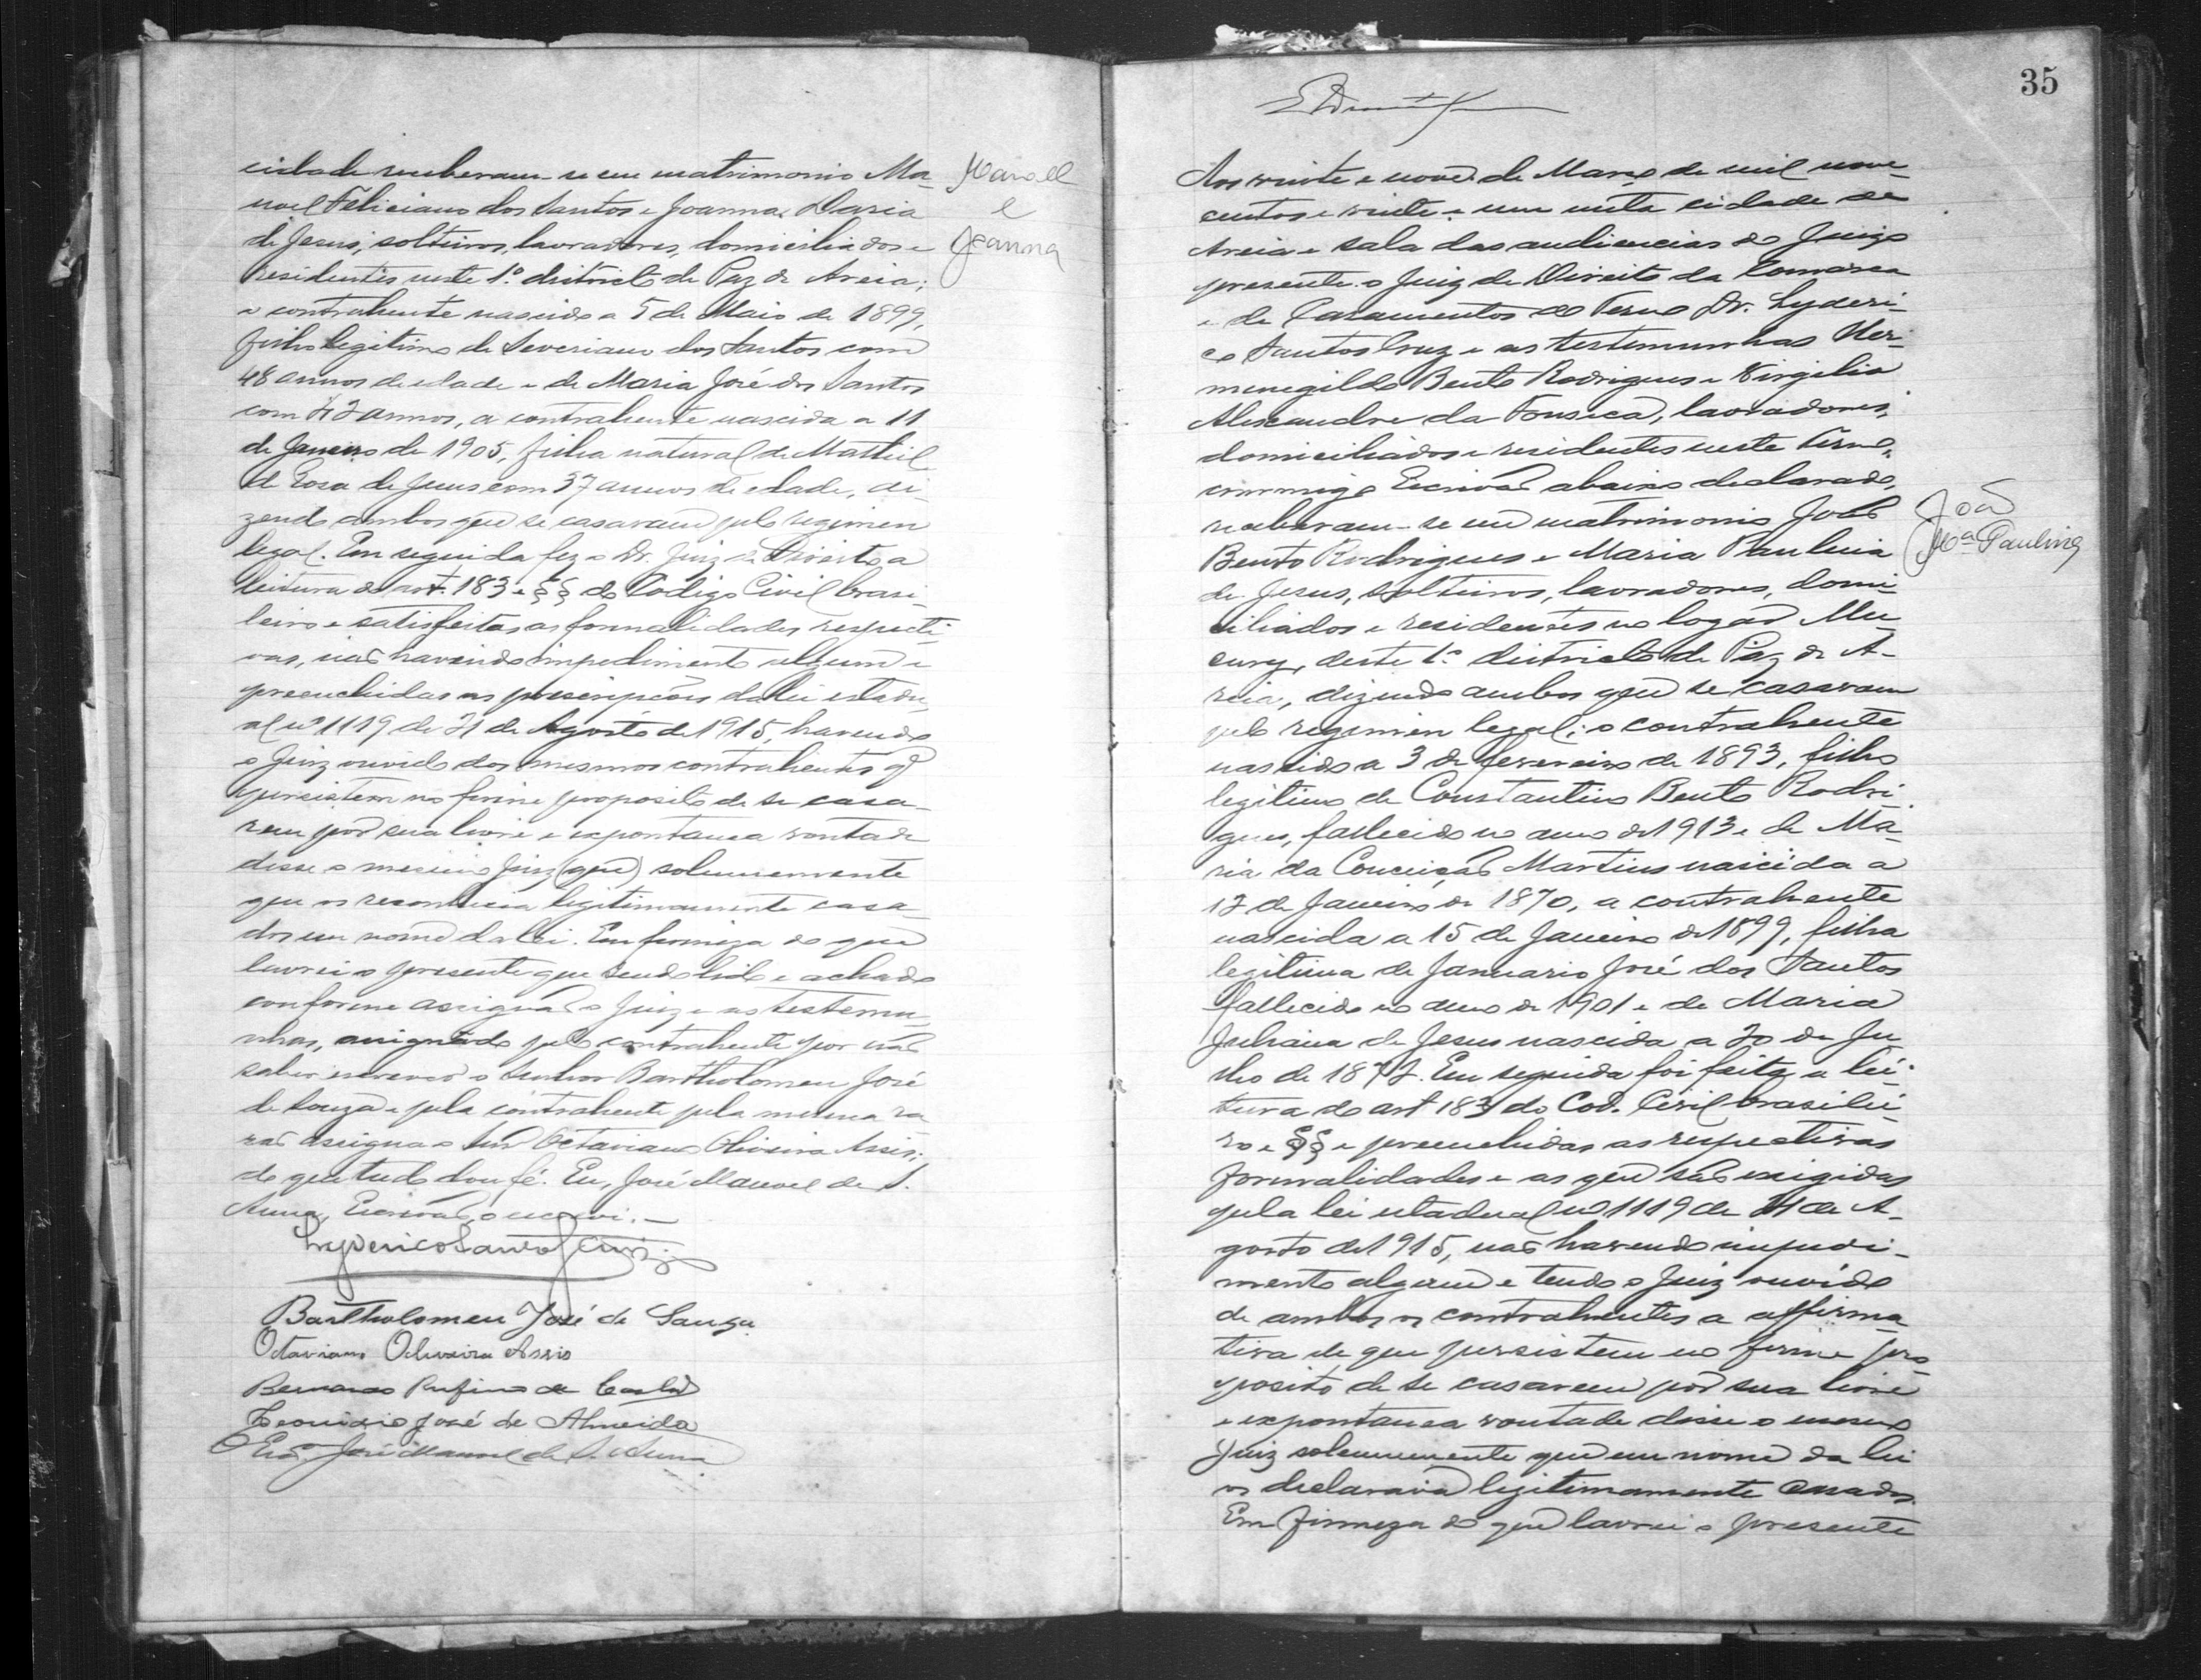 cidade receberam-se em matrimonio Ma-
noel Feliciano dos Santos e Joanna Maria
de Jesus, solteiros, lavradores, domiciliados e
residentes neste 1º districto de Paz de Areia;
o contrahente nascido a 5 de Maio de 1899,
filho legitimo de Severiano dos Santos com
48 annos de edade e de Maria José dos Santos
com 42 annos, a contrahente nascida a 11
de Janeiro de 1905, filha natural de Mathil-
de Rosa de Jesus com 37 annos de edade, di-
zendo ambos que se casavam pelo regimen
legal. Em seguida fez o Dr. Juiz de Direito a
leitura do art. 183 e §§ do Codigo Civil brasi-
leiro e satisfeitas as formalidades respecti-
vas, não havendo impedimento algum e
preenchidas as prescripções da lei estadu-
al nº 1119 de 21 de Agosto de 1915, havendo
o Juiz ouvido dos mesmos contrahentes q̃
persistem no firme proposito de se casa-
rem por sua livre e expontanea vontade
disse o mesmo Juiz (que) solemnemente
que os reconhecia legitimamente casa-
dos em nome da lei. Em firmeza do que
lavrei o presente que sendo lido e achado
conforme assigna o Juiz e as testemu-
nhas, assignando pelo contrahente por não
saber escrever o Senhor Bartholomeu José
de Souza e pela contrahente pela mesma ra-
zão assigna o Snr Octaviano Oliveira Assis;
do que tudo dou fé. Eu, José Manoel de S.
Anna, Escrivão, o escrevi.-
Lyderico Santos Cruz
Bartholomeu José de Souza
Octaviano Oliveira Assis
Bernardo Rufino de
Leonidio José de Almeida
O Esc. José Manoel de S. Anna
Manoel
e
Joanna
35
Aos vinte e nove de Março de mil nove-
centos e vinte e um nesta cidade de
Areia e sala das audiencias do Juizo
presente o Juiz de Direito da Comarca
e de Casamentos do Termo Dr. Lyderi-
co Santos Cruz e as testemunhas Her-
menegildo Bento Rodrigues e Virgilio
Alexandre da Fonseca, lavradores,
domiciliados e residentes neste termo,
commigo Escrivão abaixo declarado,
receberam-se em matrimonio João
Bento Rodrigues e Maria Paulina
de Jesus, solteiros, lavradores, domi-
ciliados e residentes no logar Mu-
cury, deste 1º districto de Paz de A-
reia, dizendo ambos que se casavam
pelo regimen legal; o contrahente
nascido a 3 de fevereiro de 1893, filho
legitimo de Constantino Bento Rodri-
gues, fallecido no anno de 1913 e de Ma-
ria da Conceição Martins nascida a
12 de Janeiro de 1870, a contrahente
nascida a 15 de Janeiro de 1899, filha
legitima de Januario José dos Santos
fallecido no anno de 1901 e de Maria
Juliana de Jesus nascida a 20 de Ju-
lho de 1872. Em seguida foi feita a lei-
tura do art 183 do Cod. Civil brasilei-
ro e §§ e preenchidas as respectivas
formalidades e as que são exigidas
pela lei estadual nº 1119 de 21 de A-
gosto de 1915, não havendo impedi-
mento algum e tendo o Juiz ouvido
de ambos os contrahentes a affirma-
tiva de que persistem no firme pro-
posito de se casarem por sua livre
e expontanea vontade disse o mesmo
Juiz solemnemente que em nome da lei
os declarava legitimamente casados.
Em firmeza do que lavrei o presente
João
Mª Paulina